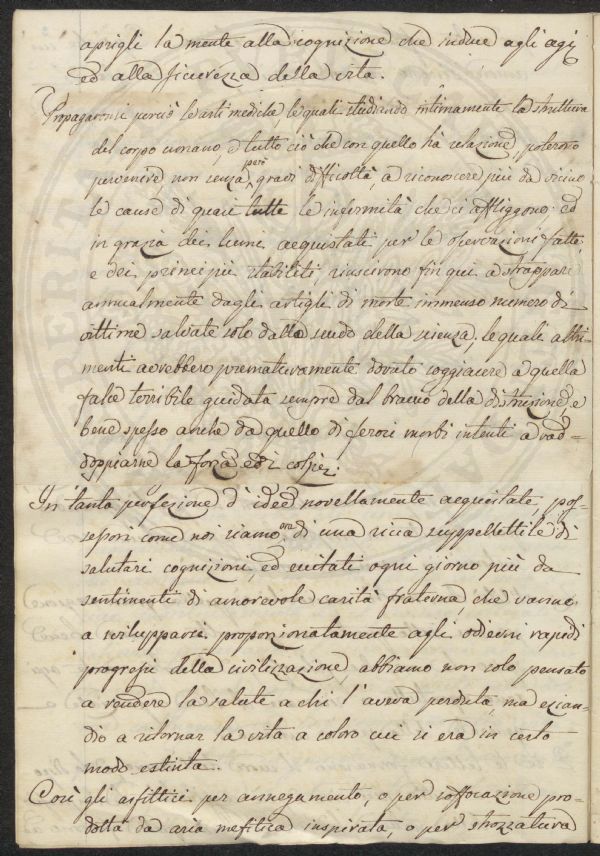 aprigli la mente alla cognizione che induce agli agj
ed alla sicurezza della vita.
Propagaronsi perciò le arti mediche le quali studiando intimamente la struttura
del corpo umano, e tutto ciò che con quello ha relazione, poterono
pervenire, non senza però gravi difficoltà, a riconoscere più da vicino
le cause di quasi tutte le infermità che ci affliggono: ed
in grazia dei lumi acquistati per le osservazioni fatte,
e dei principii stabiliti, riuscirono fin qui a strappare
annualmente dagli artigli di morte immenso numero di
vittime salvate solo dallo scudo della scienza, le quali altri-
menti avrebbero prematuramente dovuto soggiacere a quella
falce terribile guidata sempre dal braccio della distruzione, e
bene spesso anche da quello di feroci morbi intenti a rad-
doppiarne la forza ed i colpi.
In tanta profusione d'idee novellamente acquistate, pos-
sessori come noi siamo ora di una ricca suppellettile di
salutari cognizioni, ed eccitati ogni giorno più da
sentimenti di amorevole carità fraterna che vanno
a svilupparsi proporzionatamente agli odierni rapidi
progressi della civilizzazione, abbiamo non solo pensato
a rendere la salute a chi l'aveva perduta, ma ezian-
dio a ritornar la vita a coloro cui si era in certo
modo estinta.
Così gli asfittici per annegamento, o per soffocazione pro-
dotta da aria mefitica inspirata, o per strozzatura